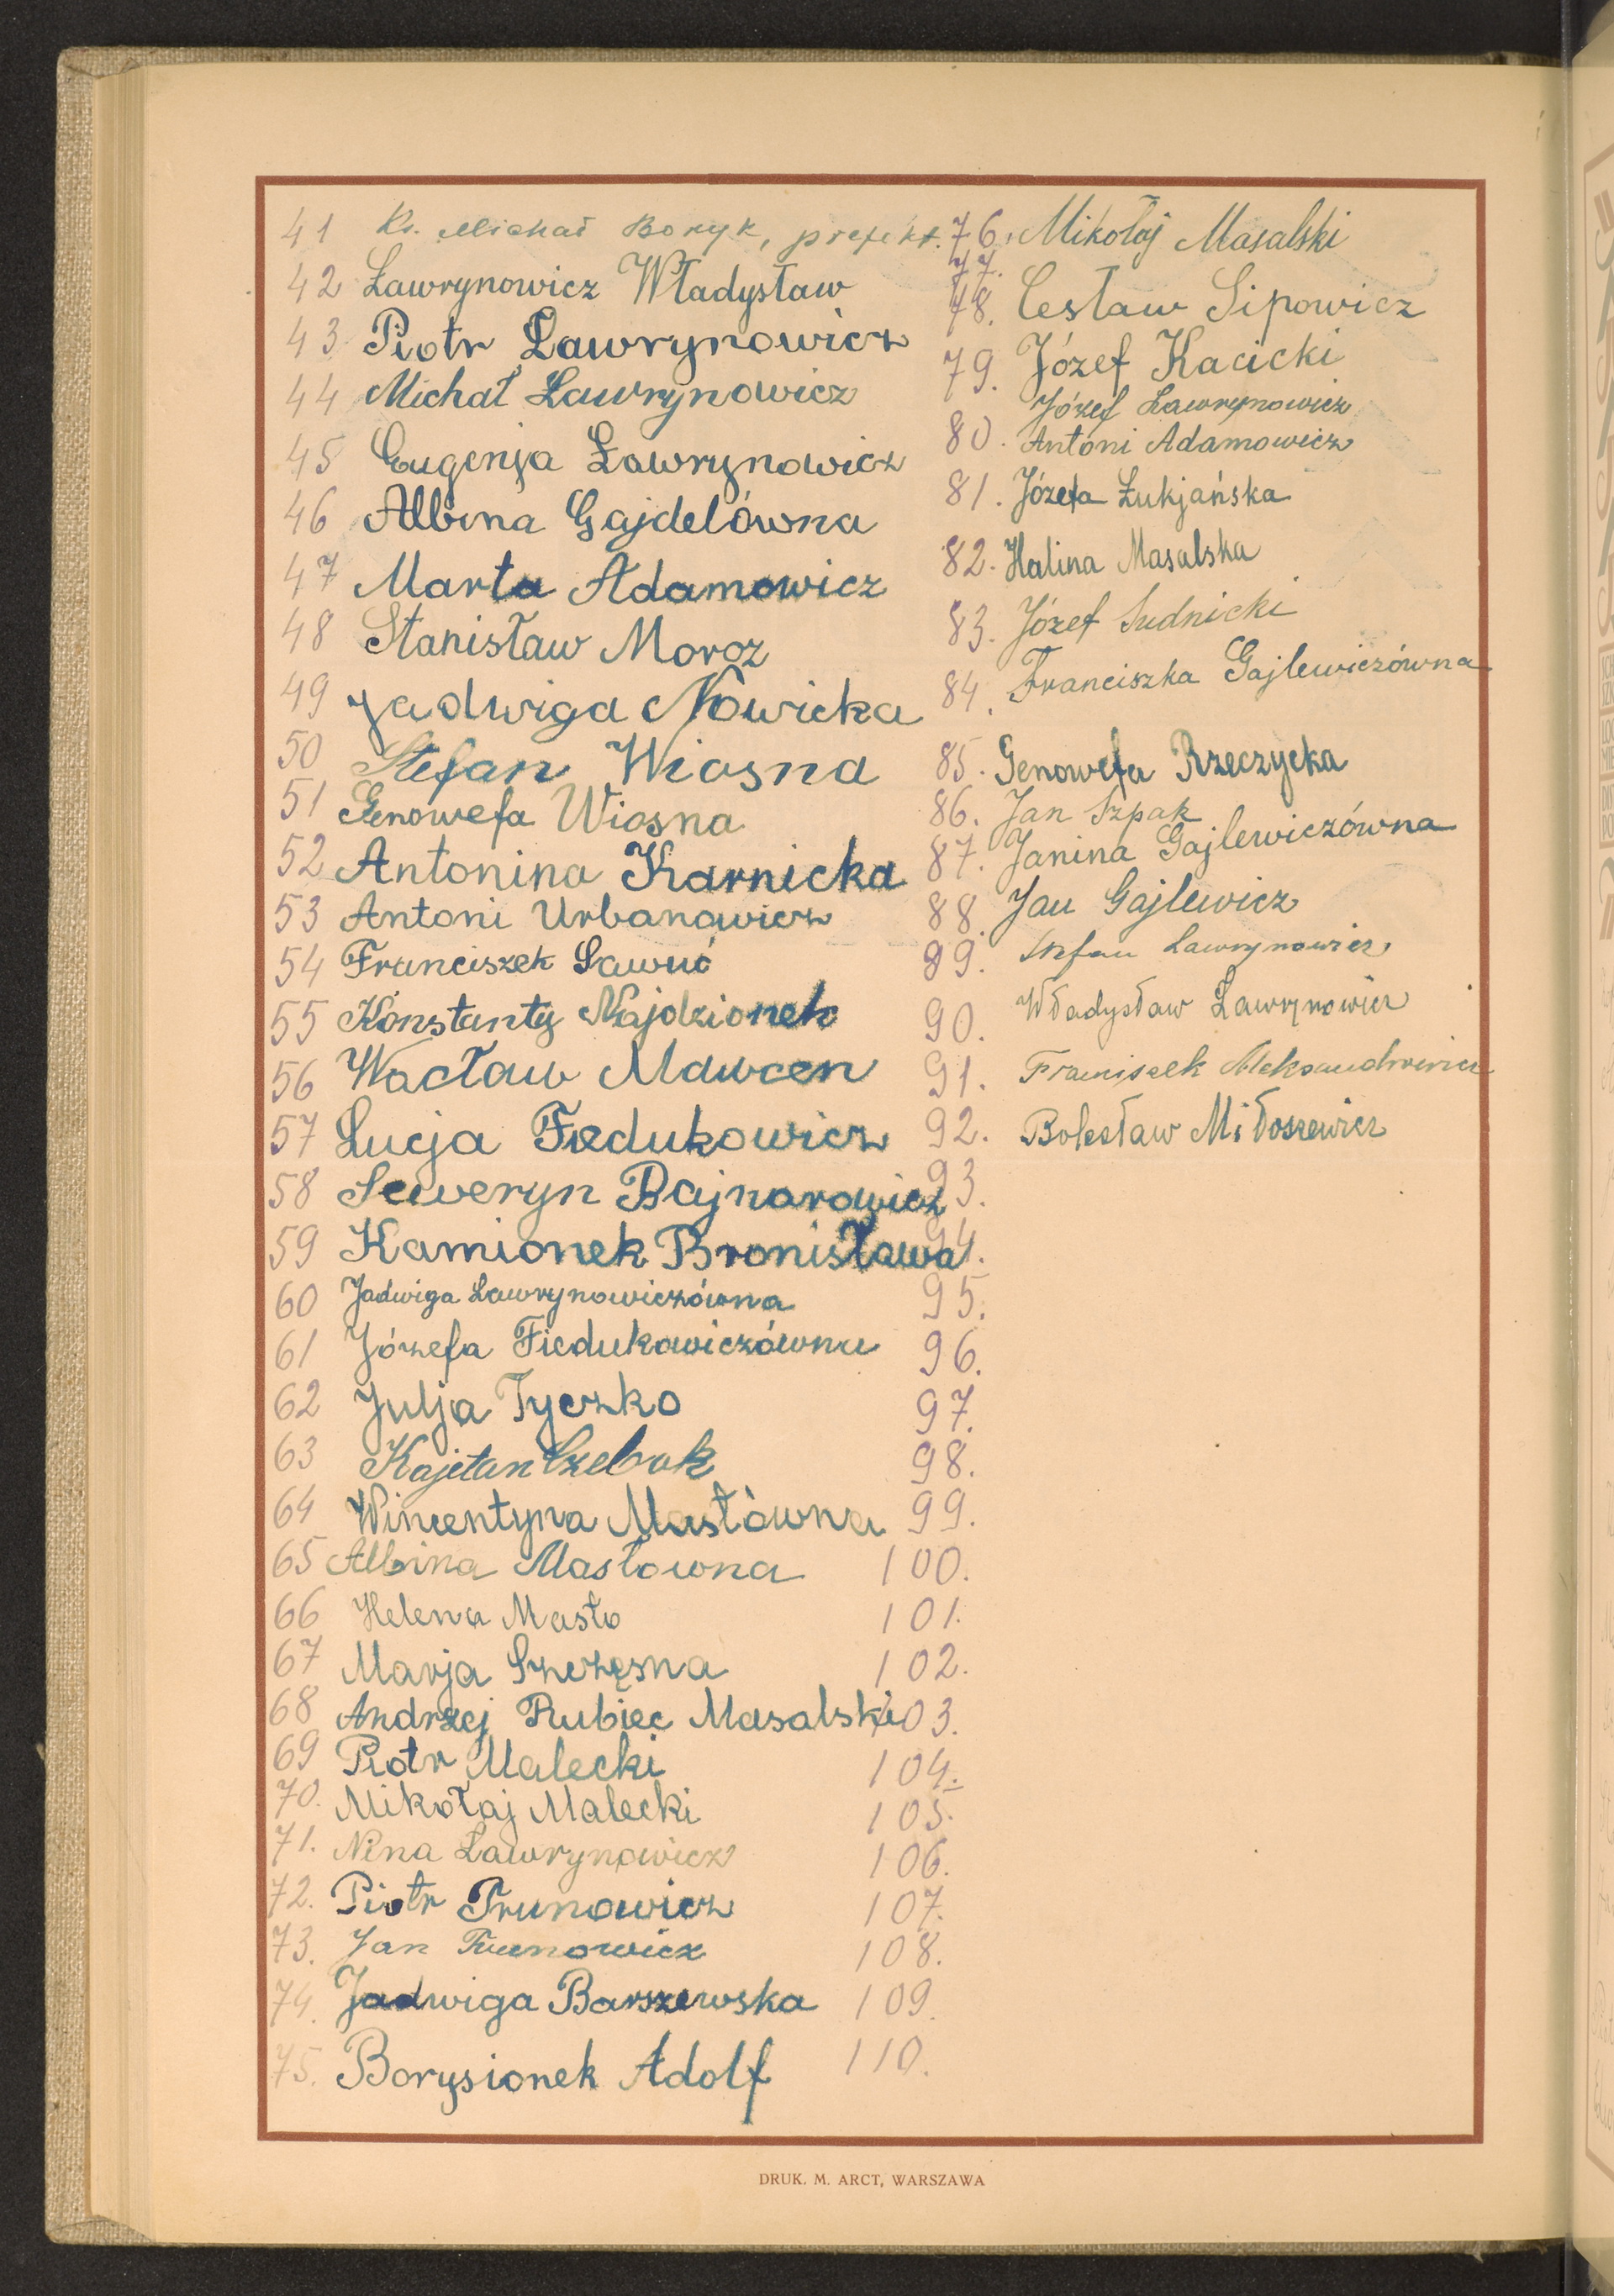 41 Ks. Michał Boryk, prefekt.
42 Ławrynowicz Władysław
43 Piotr Ławrynowicz
44 Michał Ławrynowicz
45 Eugenja Ławrynowicz
46 Albina Gajdelówna
47 Marta Adamowicz
48 Stanisław Moroz
49 Jadwiga Nowicka
50 Stefan Wiosna
51 Genowefa Wiosna
52 Antonina Karnicka
53 Antoni Urbanowicz
54 Franciszek Sawuć
55 Konstanty Najdzionek
56 Wacław Mawcen
57 Lucja Fiedukowicz
58 Seweryn Bajnarowicz
59 Kamionek Bronisława
60 Jadwiga Ławrynowiczówna
61 Józefa Fiedukowiczówna
62 Julja Tyczko
63 Kajetan Czebok
64 Wincentyna Masłówna
65 Albina Masłowna
66 Helena Masło
67 Marja Szczęsna
68 Andrzej Rubiec Masalski
69 Piotr Malecki
70. Mikołaj Malecki
71. Nina Ławrynowicz
72. Piotr Trunowicz
73. Jan Trunowicz
74. Jadwiga Barszewska
75. Borysionek Adolf
76. Mikołaj Masalski
77.
78. Cesław Sipowicz
79. Józef Kacicki
Józef Ławrynowicz
80. Antoni Adamowicz
81. Józefa Łukjańska
82. Halina Masalska
83. Józef Sudnicki
84. Franciszka Gajlewiczówna
85. Genowefa Rzeczycka
86. Jan Szpak
87. Janina Gajlewiczówna
88. Jan Gajlewicz
89. Stefan Ławrynowicz
90. Władysław Ławrynowicz
91. Franciszek Aleksandrowicz
92. Bolesław Miłoszewicz
93.
94.
95.
96.
97.
98.
99.
100.
101.
102.
103.
104.
105.
106.
107.
108.
109.
110.
DRUK. M. ARCT, WARSZAWA